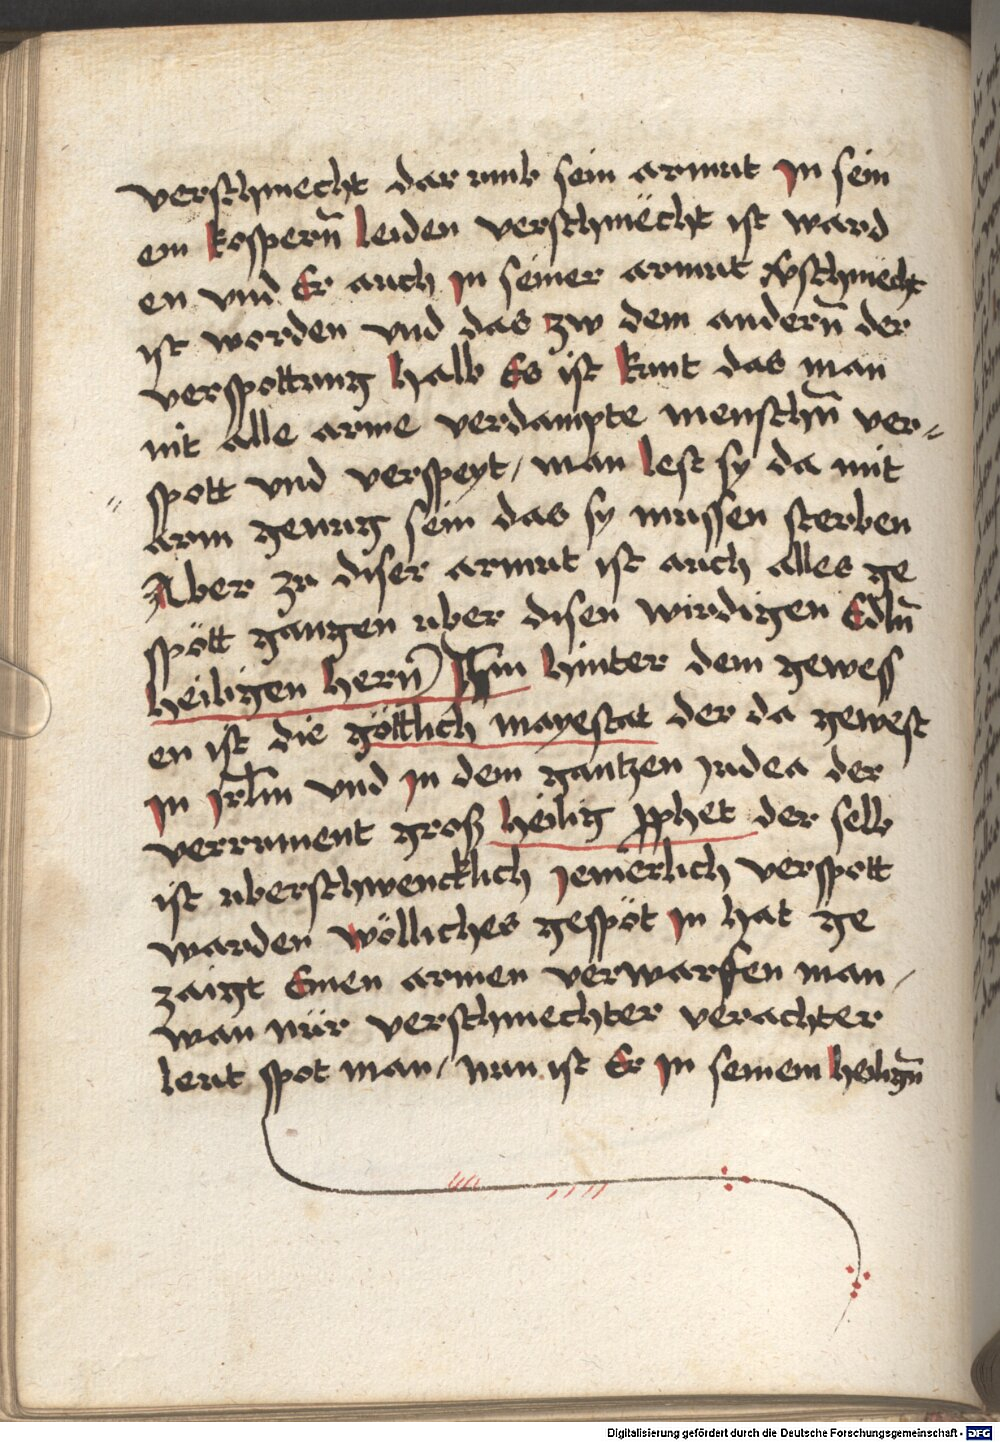 verschmecht dar umb sein armut In sein
em kosperñ leiden verschmëcht ist ward
en vnd Er auch in seiner armut v̾schmecht
ist worden vnd das zw dem anderñ der
verspottung halb Es ist kunt das man
nit alle arme verdampte menschñ ver=
spott vnd verspeyt / man lest sy da mit
arm genug sein das sy mussen sterben
Aber zu diser armut ist auch alles ge
spött gangen uber disen wirdigen Edlñ
heiligen herñ hinter dem gewess
en ist die göttlich mayestat der da gewest
In Jrlm̄ vnd In dem gantzen Judea der
verrument groß heilig ꝓphet der selb
ist uberschwencklich Jemerlich verspott
warden wölliches gespöt In hat ge
zaigt Einen armen verwarffen man /
wan nür verschmechter verachter
leut spot man / nun ist Er In seinem heiligñ
Digitalisierung gefördert durch die Deutsche Forschungsgemeinschaft - DFG